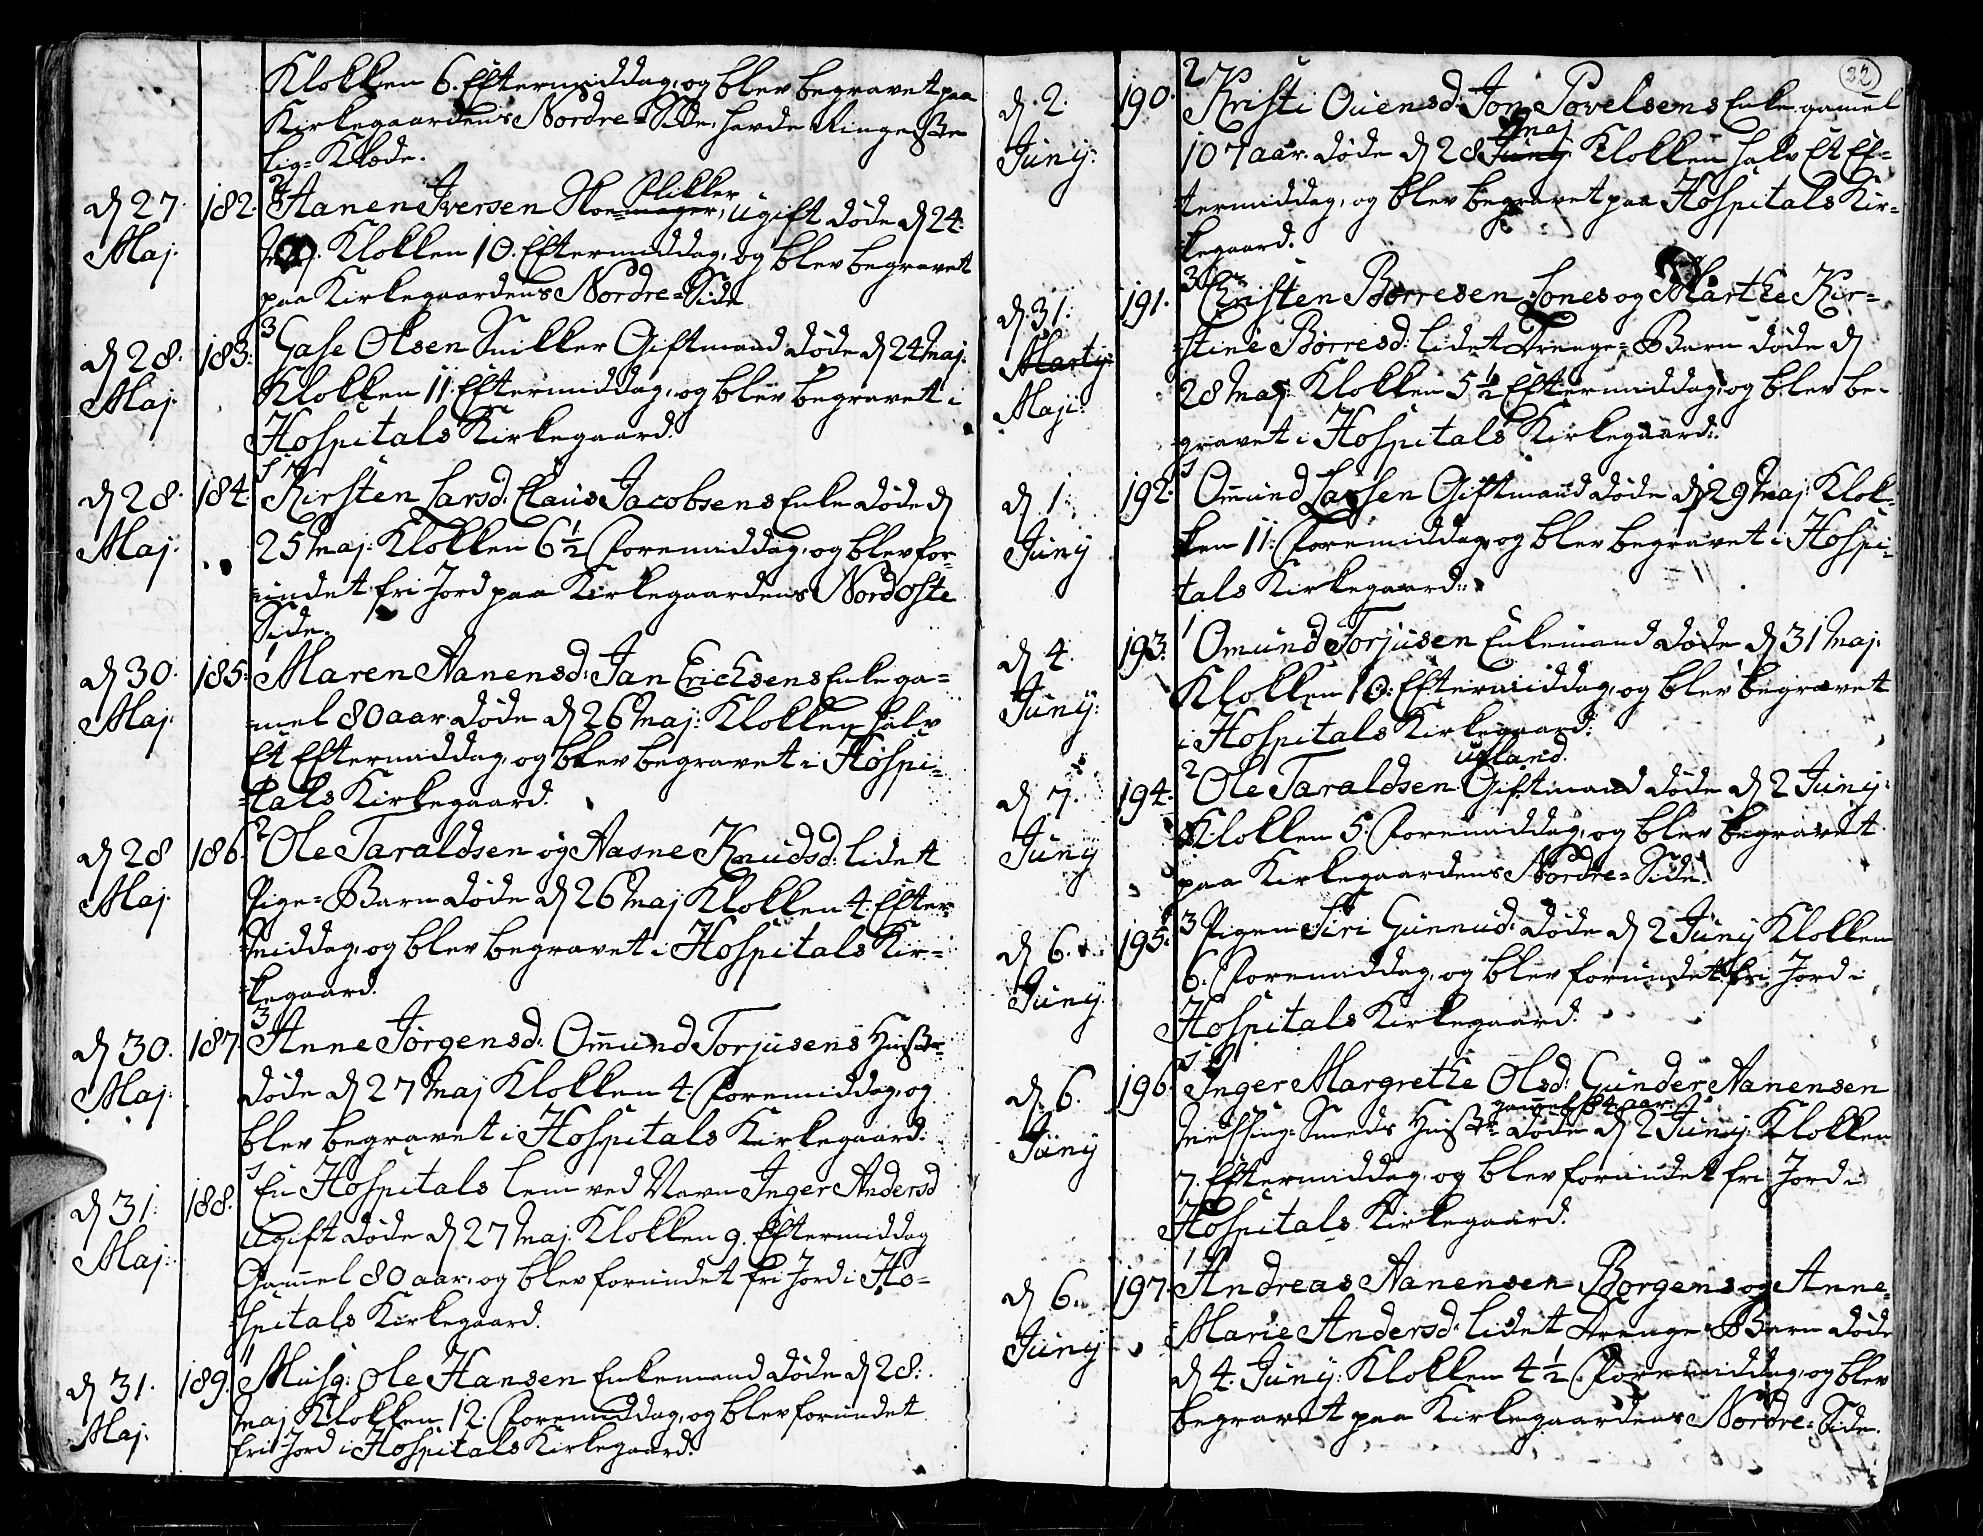 Klokken 6. Eftermiddag, og blev begravet paa
Kirkegaardens Nordre-Side, havde Ringeste
Lig-Klæde.
d 27. Maj. 182. 2 Aanen Iversen Skoe-mager, Flikker, ugift døde d 24.
Maj. Klokken 10. Eftermiddag, og blev begravet
paa Kirkegaardens Nordre-Side
d 28. Maj. 183. 3 Gase Olsen Snikker Giftmand døde d 24 Maj.
Klokken 11. Eftermiddag, og blev begravet i
Hospitals Kirkegaard.
d 28. Maj. 184. Kirsten Larsd: Claus Jacobsens Enke døde d
25 Maj: Klokken 6½ Formiddag, og blev for-
-undet fri Jord paa Kirkegaardens Nordoste
Side.
d 30. Maj. 185. 1 Maren Aanensd: Jan Erichsens Enke ga-
-mel 80 aar døde d 26 Maj: Klokken halv
Et Eftermiddag, og blev begravet i Hospi-
-tals Kirkegaard.
d 28 Maj. 186. 2 Ole Taraldsen og Aasne Knudsd: lidet
Pige-Barn døde d 26 Maj Klokken 4. Efter-
-middag, og blev begravet i Hospitals Kir-
-kegaard.
d 30. Maj. 187. 3 Anne Jørgensd: Omund Torjusens Hustr:
døde d 27 Maj Klokken 4. Formiddag, og
blev begravet i Hospitals Kirkegaard.
d 31. Maj. 188. En Hospitals Lem ved Navn Inger Andersd
Ugift døde d 27 Maj. Klokken 9. Eftermiddag
Gammel 80 aar, og blev forundet fri Jord i Ho-
-spitals Kirkegaard.
d 31. Maj. 189. Musq: Ole Hansen Enkemand døde d 28.
Maj Klokken 12. Formiddag, og blev forundet
fri Jord i Hospitals Kirkegaard.
22
d. 2. Juny: 190. 2 Kristi Ouensd: Jon Povelsens Enke gamel
107 aar. døde d 28 Juny Maj Klokken halv Et Ef-
termiddag, og blev begravet paa Hospitals Kir-
-kegaard.
d. 31. Marty: Maji: 191. 3 Christen Børresen Lones og Marthe Kir-
-stine Børresd: lidet Drenge-Barn døde d
28 Maj: Klokken 5½ Eftermiddag, og blev be-
gravet i Hospitals Kirkegaard.
d 1. Juny 192. Omund Larsen Giftmand døde d 29 Maj: Klok-
ken 11: Formiddag og blev begravet i Hospi-
tals Kirkegaard.
d 4. Juny: 193. 1 Omund Torjusen Enkemand døde d 31 Maj.
Klokken 10. Eftermiddag, og blev begravet
i Hospitals Kirkegaard.
d 7. Juny 194. 2 Ole Taraldsen Ugland Giftmand døde d 2 Juny:
Klokken 5. Formiddag, og blev begravet
paa Kirkegaardens Nordre-Side.
d 6. Juny 195. 3 Pigen Siri Gunnud: døde d 2 Juny Klokken
6. Formiddag, og blev forundet fri Jord i
Hospitals Kirkegaard.
d 6. Juny 196. Inger Margrethe Olsd: Gunder Aanensen
Messing-Smeds Hustr: gammel 84 aar døde d 2 Juny: Klokken
7. Eftermiddag, og blev forundet fri Jord i
Hospitals Kirkegaard.
d 6. Juny 197. 1 Andreas Aanensen Borgens og Anne
Marie Andersd: lidet Drenge-Barn døde
d 4. Juny: Klokken 4½ Formiddag, og blev
begravet paa Kirkegaardens Nordre-Side.